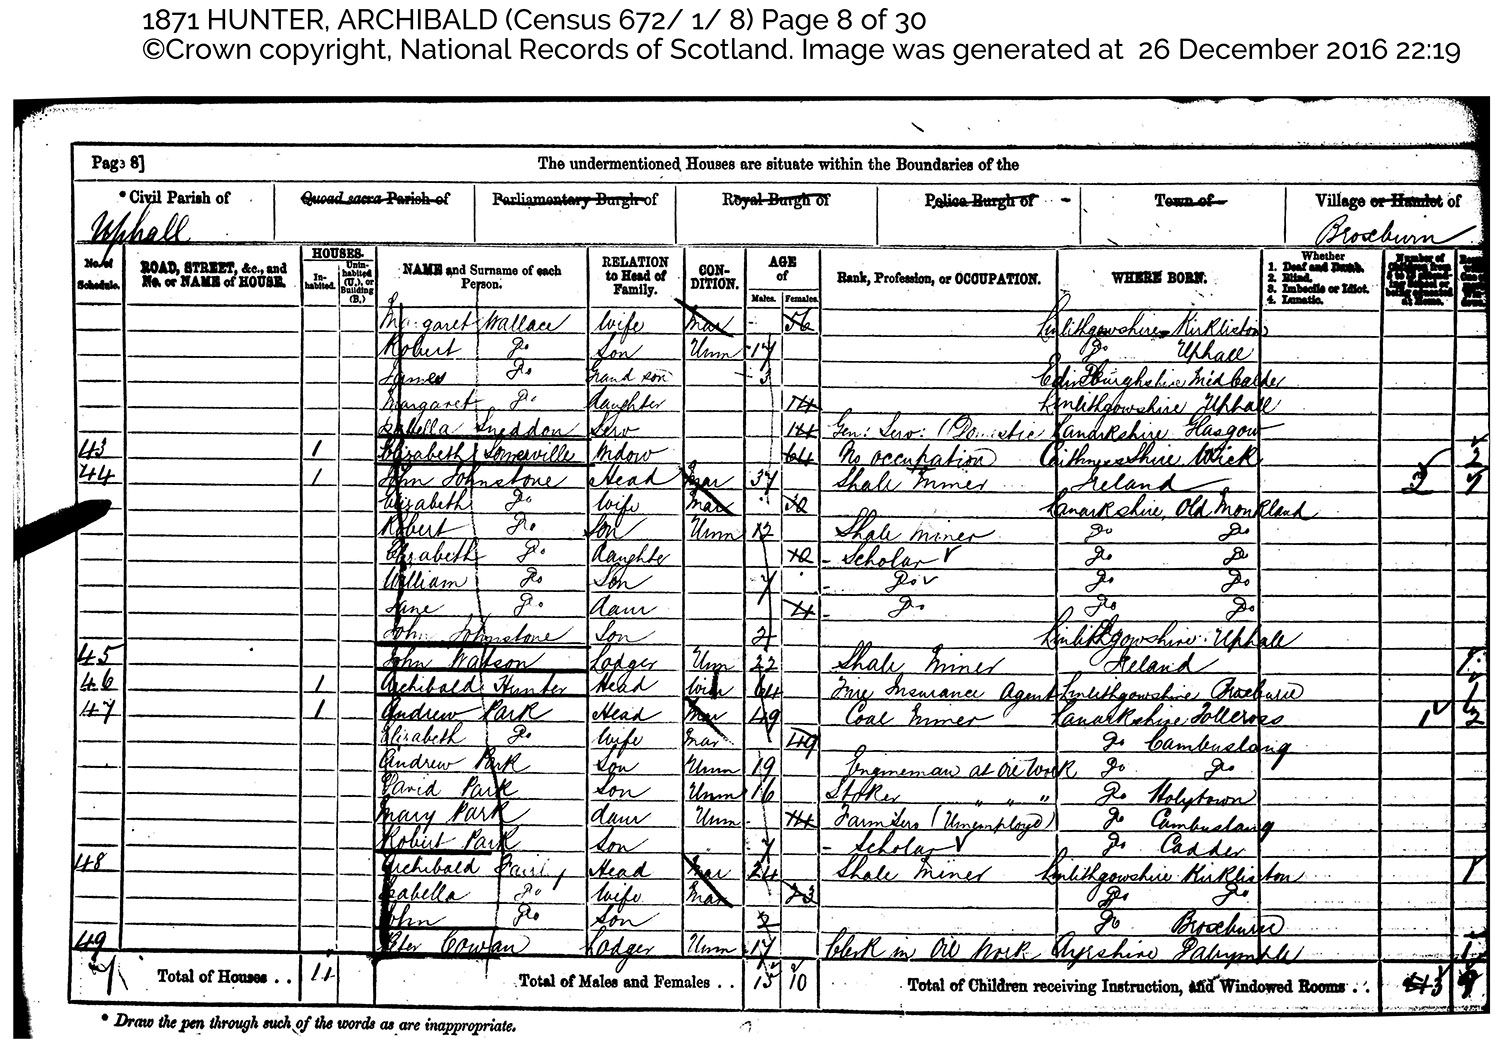 1871 HUNTER, ARCHIBALD (Census 672/ 1/ 8) Page 8 of 30
©Crown copyright, National Records of Scotland. Image was generated at 26 December 2016 22:19
Page 8] The undermentioned Houses are situate within the Boundaries of the
* Civil Parish of Quoad sacra Parish of Parliamentary Burgh of Royal Burgh of Police Burgh of Town of Village or Hamlet of
Uphall Broxburn
No. of Schedule. ROAD, STREET, &c., and No. or NAME of HOUSE. HOUSES. Inhabited. Uninhabited (U.), or Building (B.) NAME and Surname of each Person. RELATION to Head of Family. CONDITION. AGE of Males. Females. Rank, Profession, or OCCUPATION. WHERE BORN. Whether 1. Deaf and Dumb. 2. Blind. 3. Imbecile or Idiot. 4. Lunatic.
Margaret Wallace Wife Mar 56 Linlithgowshire Kirkliston
Robert Do Son Unm 17 Do Uphall
James Do Grand son 3 Edinburghshire Mid Calder
Margaret Do daughter 14 Linlithgowshire Uphall
Isabella Sneddon Serv 14 Gen: Serv: (Domestic Lanarkshire Glasgow
43 1 Elizabeth Somerville Widow 64 No occupation Caithnessshire Wick 2
44 1 John Johnstone Head Mar 37 Shale Miner Ireland 2
Elizabeth Do Wife Mar 32 Lanarkshire, Old Monkland
Robert Do Son Unm 12 Shale miner Do Do
Elizabeth Do daughter 10 Scholar Do Do
William Do Son 7 Do Do Do
Jane Do daur 4 Do Do Do
John Johnstone Son 2 Linlithgowshire Uphall
45 John Watson Lodger Unm 22 Shale Miner Ireland
46 1 Archibald Hunter Head Wid 64 Fire Insurance Agent Linlithgowshire Broxburn 1
47 1 Andrew Park Head Mar 49 Coal Miner Lanarkshire Tollcross 1 2
Elizabeth Do Wife Mar 49 Do Cambuslang
Andrew Park Son Unm 19 Engineman at Oil Work Do Do
David Park Son Unm 16 Stoker " " " Do Holytown
Mary Park daur Unm 14 Farm Serv (Unemployd) Do Cambuslang
Robert Park Son 7 Scholar Do Cadder
48 Archibald Head Mar 24 Shale Miner Linlithgowshire Kirkliston 1
Isabella Do Wife Mar 23 Do Do
John Do Son 2 Do Broxburn
49 Peter Cowan Lodger Unm 17 Clerk in Oil Work Ayrshire Dalrymple
7 Total of Houses . . Total of Males and Females . . 15 10 Total of Children receiving Instruction, and Windowed Rooms . . 3
* Draw the pen through such of the words as are inappropriate.